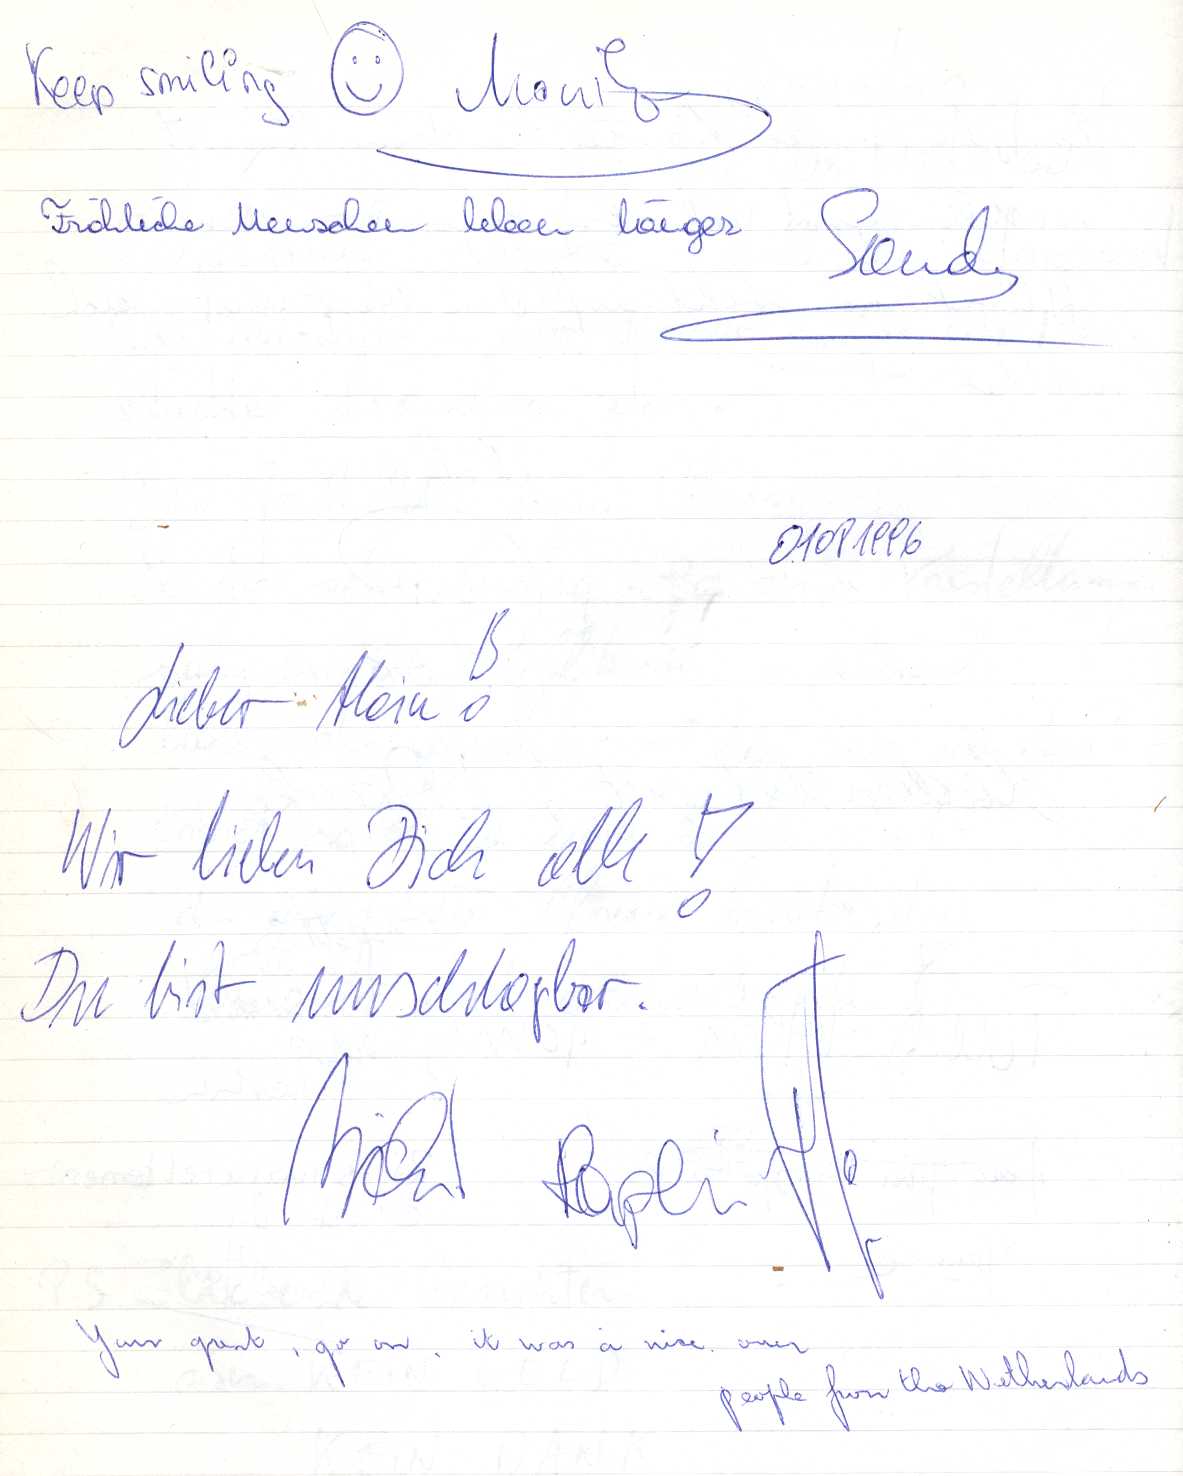 Keep smiling
Fröhliche Menschen leben länger Sandy
01081996
Lieber Alain!
Wir lieben Dich alle!
Du bist unschlagbar.
Your great, go on, it was a nice
people from the Netherlands